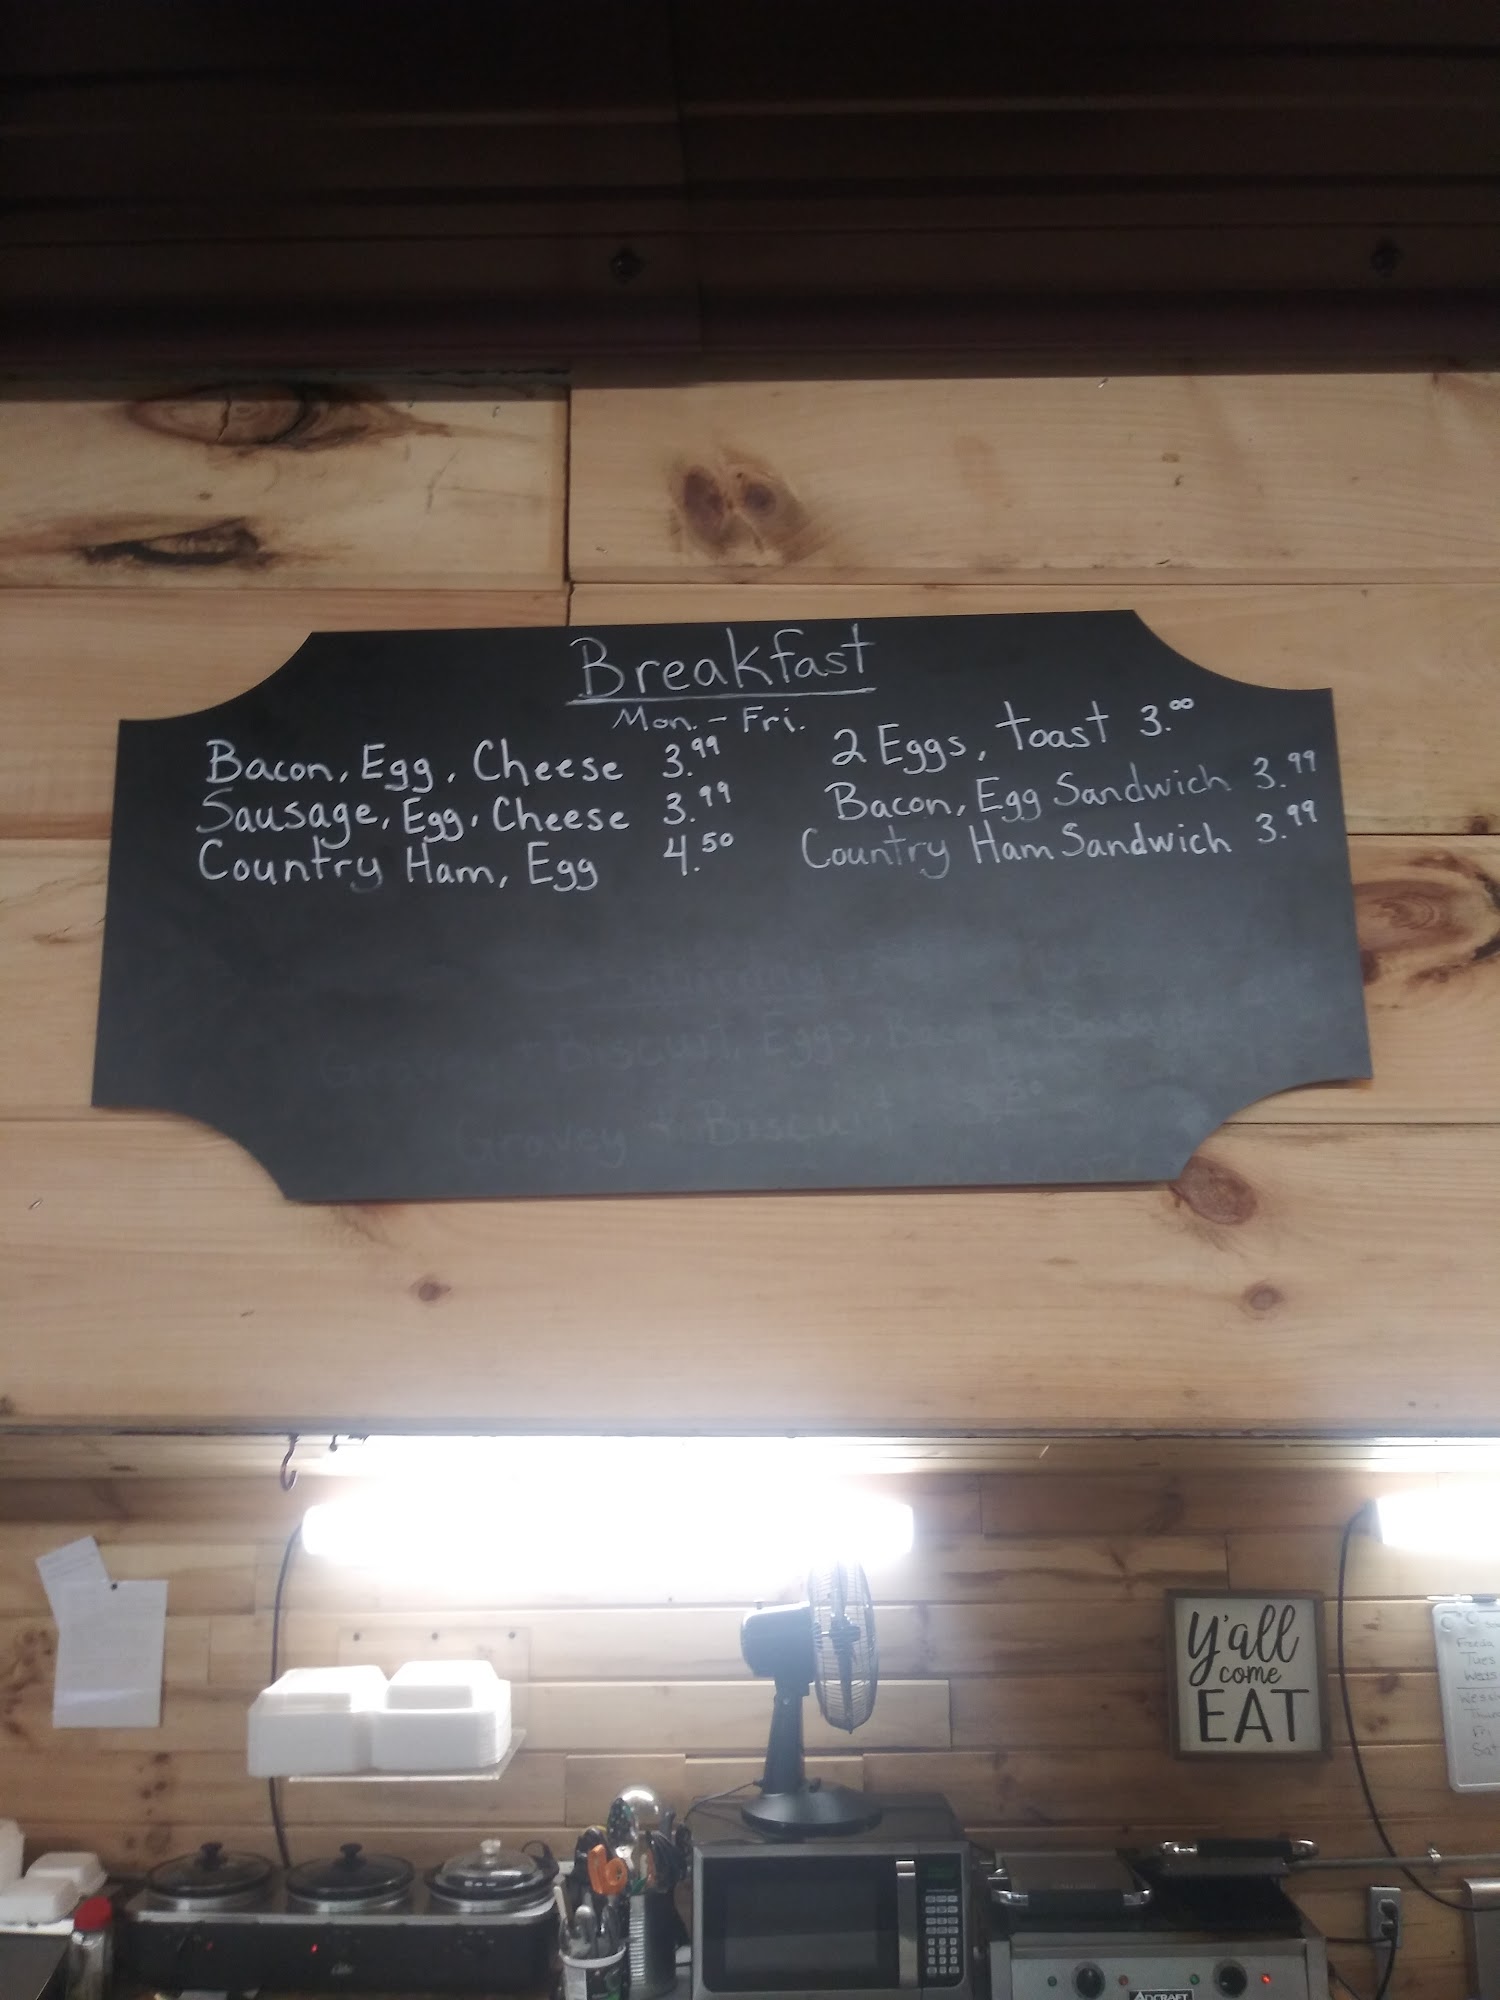 Breakfast
Mon. - Fri.
Bacon, Egg, Cheese 3.99
Sausage, Egg, Cheese 3.99
Country Ham, Egg 4.50
2 Eggs, toast 3.00
Bacon, Egg Sandwich 3.99
Country Ham Sandwich 3.99
Gravey + Biscuit, Eggs, Bacon
Gravey + Biscuit
Y'all
come
EAT
Tues
Thur
Fri
Sat
ADCRAFT